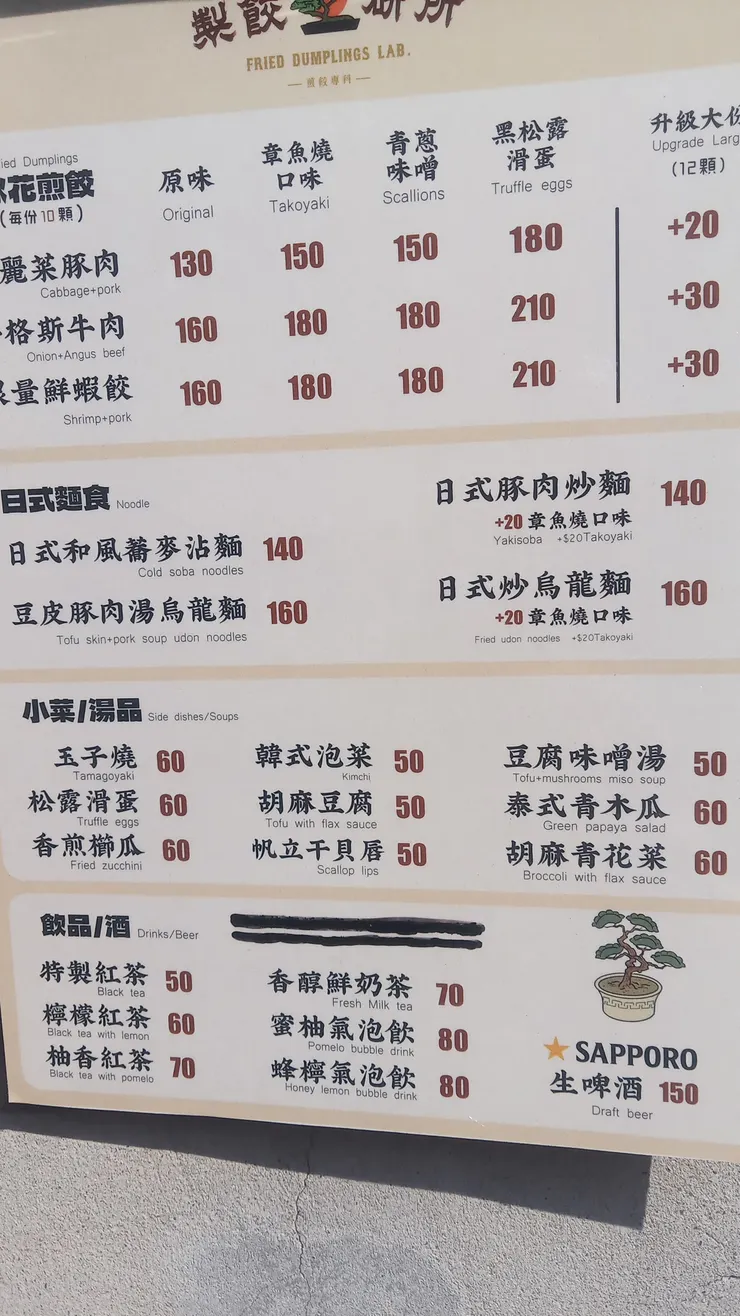 製餃
FRIED DUMPLINGS LAB.
煎餃專科
ied Dumplings
花煎餃
(每份10顆)
原味
Original
章魚燒
口味
Takoyaki
青蔥
味噌
Scallions
黑松露
滑蛋
Truffle eggs
升級大份
Upgrade Larg
(12顆)
麗菜豚肉 130 150 150 180 +20
Cabbage+pork
格斯牛肉 160 180 180 210 +30
Onion+Angus beef
量鮮蝦餃 160 180 180 210 +30
Shrimp+pork
日式麵食 Noodle
日式和風蕎麥沾麵 140
Cold soba noodles
豆皮豚肉湯烏龍麵 160
Tofu skin+pork soup udon noodles
日式豚肉炒麵 140
+20 章魚燒口味
Yakisoba +$20Takoyaki
日式炒烏龍麵 160
+20 章魚燒口味
Fried udon noodles +$20Takoyaki
小菜/湯品 Side dishes/Soups
玉子燒 60
Tamagoyaki
松露滑蛋 60
Truffle eggs
香煎櫛瓜 60
Fried zucchini
韓式泡菜 50
Kimchi
胡麻豆腐 50
Tofu with flax sauce
帆立干貝唇 50
Scallop lips
豆腐味噌湯 50
Tofu+mushrooms miso soup
泰式青木瓜 60
Green papaya salad
胡麻青花菜 60
Broccoli with flax sauce
飲品/酒 Drinks/Beer
特製紅茶 50
Black tea
檸檬紅茶 60
Black tea with lemon
柚香紅茶 70
Black tea with pomelo
香醇鮮奶茶 70
Fresh Milk tea
蜜柚氣泡飲 80
Pomelo bubble drink
蜂檸氣泡飲 80
Honey lemon bubble drink
SAPPORO
生啤酒 150
Draft beer